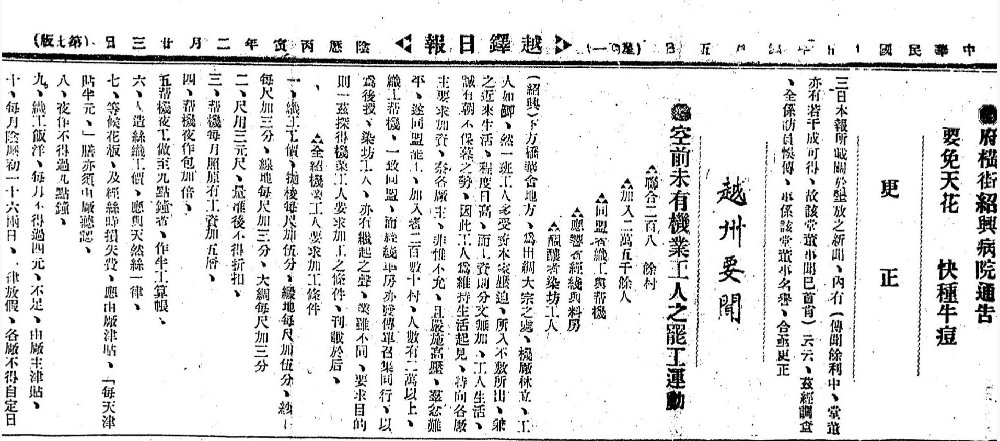 中華民國十五年四月五日
(星期一)
越鐸日報
陰歷丙寅年二月廿三日
(第七版)
府橫街紹興病院通告
要免天花 快種牛痘
更正
三日本報所載關於堊放之新聞、內有(傳聞餘利中、堂董
亦有若干成可得、故該堂董事聞已首肯)云云、茲經調查
、全係訪員悞傳、事係該堂董事名譽、合亟更正
越州要聞
空前未有機業工人之罷工運動
聯合二百八 餘村
加入二萬五千餘人
同盟者織工與帮機
應響者經綫與料房
醞釀者染坊工人
(紹興)下方橋華舍地方、為出綢大宗之處、機廠林立、工
人如鯽、然一班工人多受資本家壓迫、所入不敷所出、兼
之近來生活、程度日高、而工資則分文無加、工人生活、
誠有朝不保暮之勢、因此工人為維持生活起見、特向各廠
主要求加資、奈各廠主、非惟不允、且嚴施高壓、羣忿難
平、遂同盟罷工、加入者二百數十村、人數有二萬以上、
織工帮機、一致同盟、而經綫車房亦發傳單召集同行、以
為後援、染坊工人、亦有繼起之聲、業雖不同、要求目的
則一茲探得機業工人要求加工之條件、刊載於后、
全紹機業工人要求加工條件
一、織工工價、拋綾每尺加伍分、縐地每尺加伍分、紗
每尺加三分、線地每尺加三分、大綢每尺加三分
二、尺用三元尺、量准後不得折扣、
三、帮機每月照原有工資加五厝、
四、帮機夜作包加倍、
五帮機夜工做至九點鐘者、作半工算帳、
六、人造絲織工價、應與天然絲一律、
七、等候花板、及經絲時損失費、應由廠津貼、「每天津
貼半元、」膳亦須由廠聽認、
八、夜作不得過九點鐘、
九、織工飯洋、每月不得過四元、不足、由廠主津貼、
十、每月陰歷初一十六兩日、一律放假、各廠不得自定日